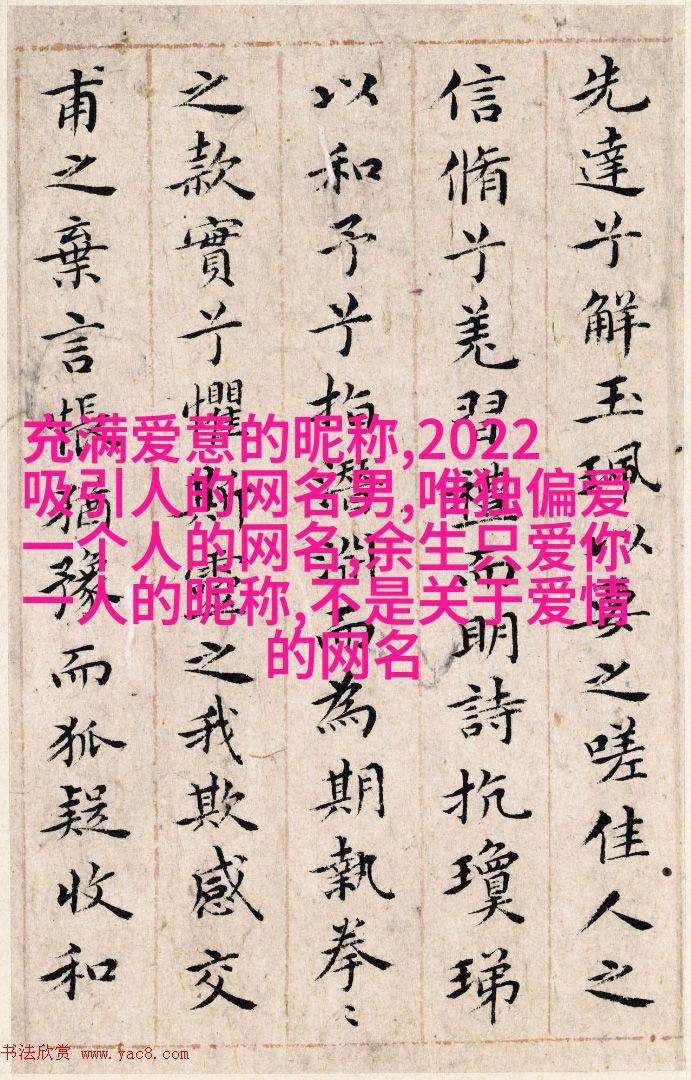 先達兮解玉珮以要之嗟佳人之
信脩兮羌習禮而明詩抗瓊珶
以和予兮指潛淵而為期執拳〻
之款實兮懼斯靈之我欺感交
甫之棄言悵猶豫而狐疑收和
充满爱意的昵称,2022
吸引人的网名男,唯独偏爱
一个人的网名,余生只爱你
一人的昵称,不是关于爱情
的网名
书法欣赏 www.yac8.com